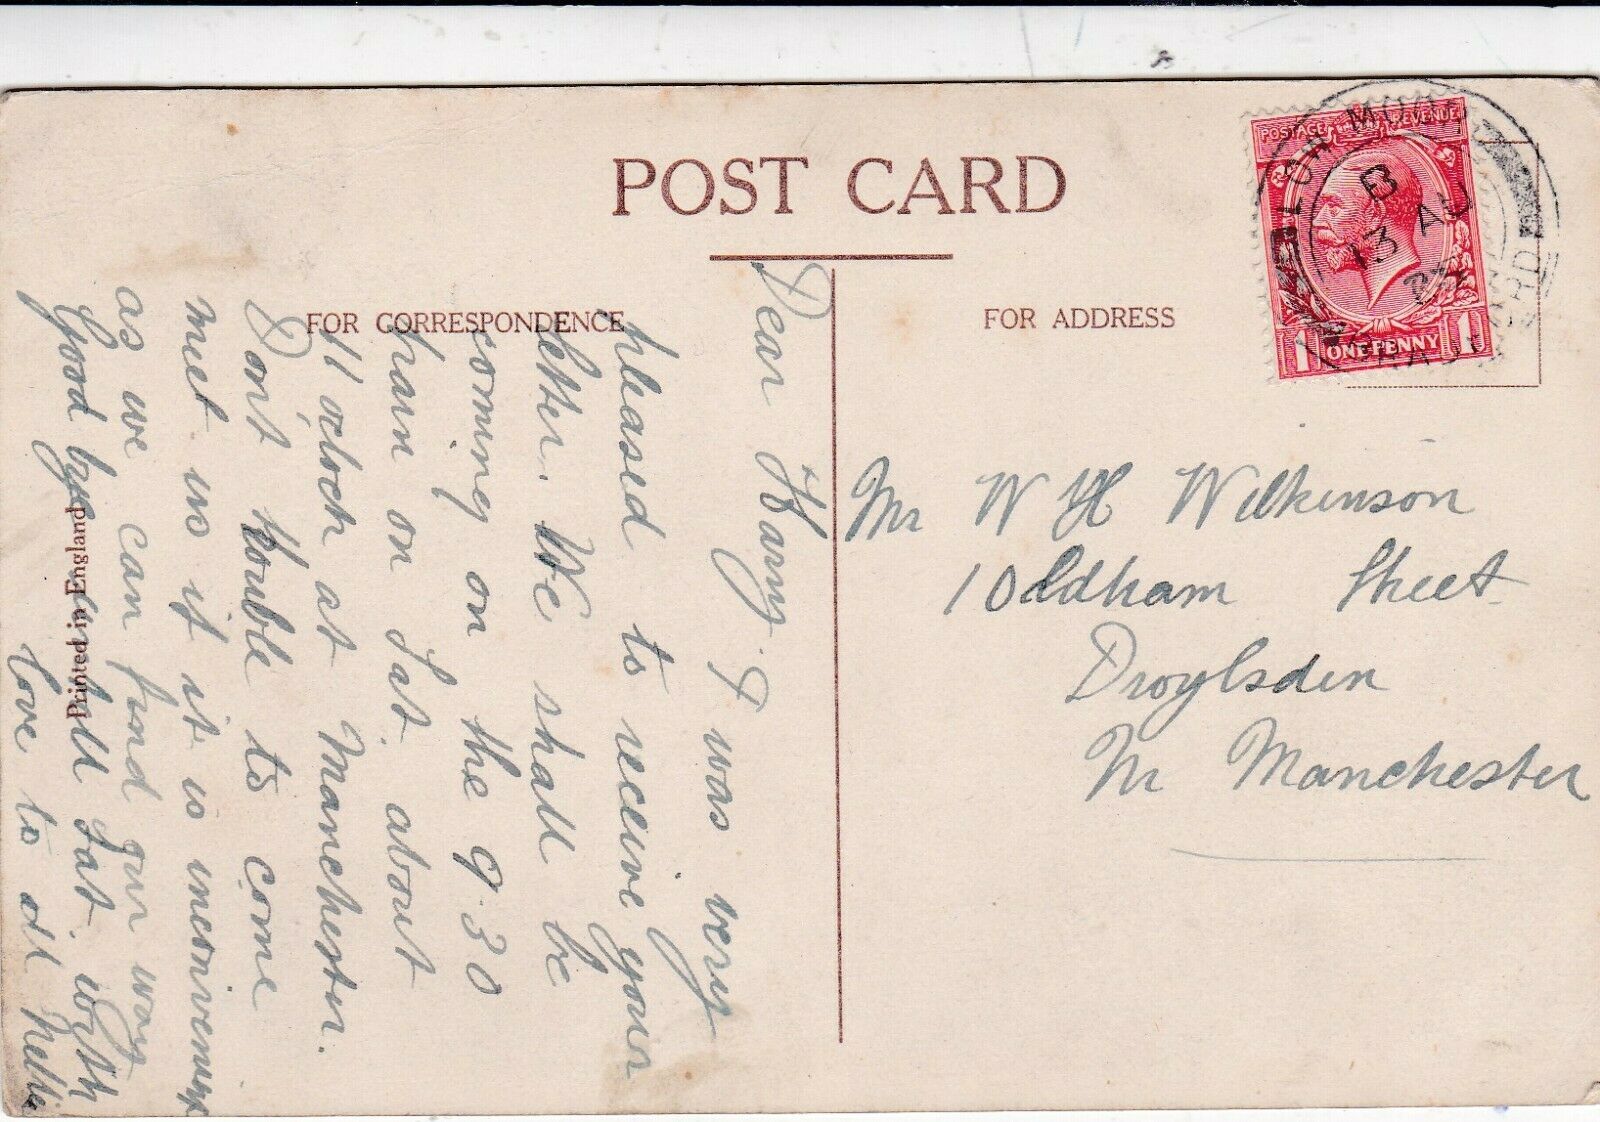 POST CARD
FOR CORRESPONDENCE
FOR ADDRESS
POSTAGE REVENUE
ONE PENNY
1 1
LOW MOOR
BRADFORD
B
13 AU
Printed in England
Dear Harry. I was very
pleased to receive your
letter. We shall be
coming on the 9.30
train on Sat. about
11 o'clock at Manchester.
Don't trouble to come
meet us if it is inconvenient
as we can find our way
Good bye until Sat. with
love to all Nellie
Mr W H Wilkinson
1 Oldham Street
Droylsden
Nr Manchester